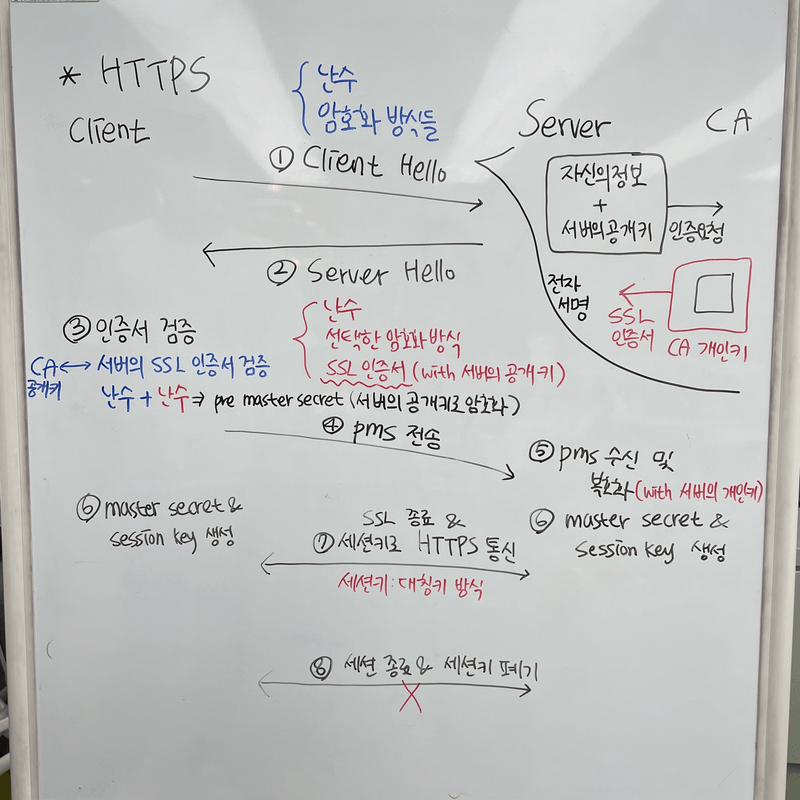 * HTTPS
난수
암호화 방식들
Client
Server
CA
① Client Hello
자신의정보
+
서버의공개키
인증요청
② Server Hello
전자
서명
SSL
인증서
CA 개인키
③ 인증서 검증
난수
선택한 암호화방식
SSL 인증서 (with 서버의 공개키)
CA ↔ 서버의 SSL 인증서 검증
공개키
난수 + 난수 ⇒ pre master secret (서버의 공개키로 암호화)
④ pms 전송
⑤ pms 수신 및
복호화 (with 서버의 개인키)
⑥ master secret &
session key 생성
SSL 종료 &
⑦ 세션키로 HTTPS 통신
세션키 : 대칭키 방식
⑥ master secret &
session key 생성
⑧ 세션 종료 & 세션키 폐기
X